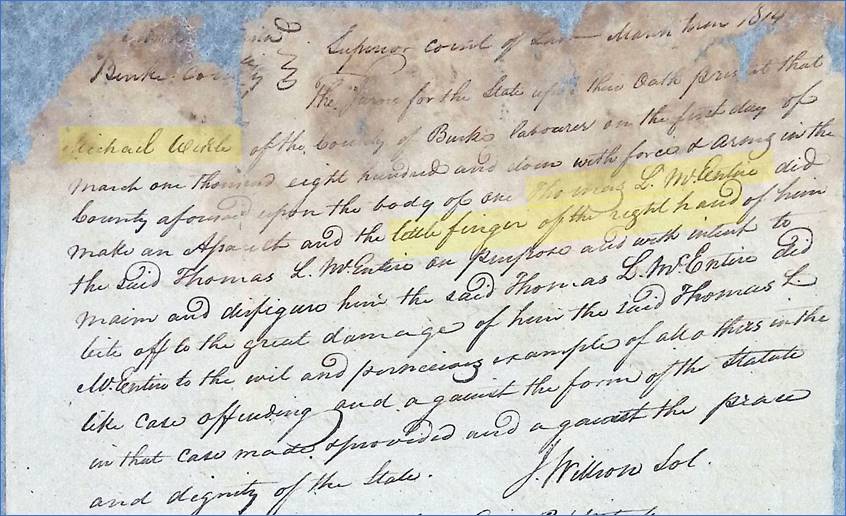 Burke Coun
Superior court of Law March term 1814
The Jurors for the State upon their Oath present that
Michael of the County of Burke labourer on the first day of
march one thousand eight hundred and with force & arms in the
County aforesaid upon the body of one Thomas L. McEntire did
make an Assault and the little finger of the right hand of him
the said Thomas L. McEntire on purpose and with intent to
maim and disfigure him the said Thomas L. McEntire did
bite off to the great damage of him the said Thomas L
McEntire to the evil and pernicious example of all others in the
like case offending and against the form of the Statute
in that case made & provided and against the peace
and dignity of the State.
J. Willson Sol.